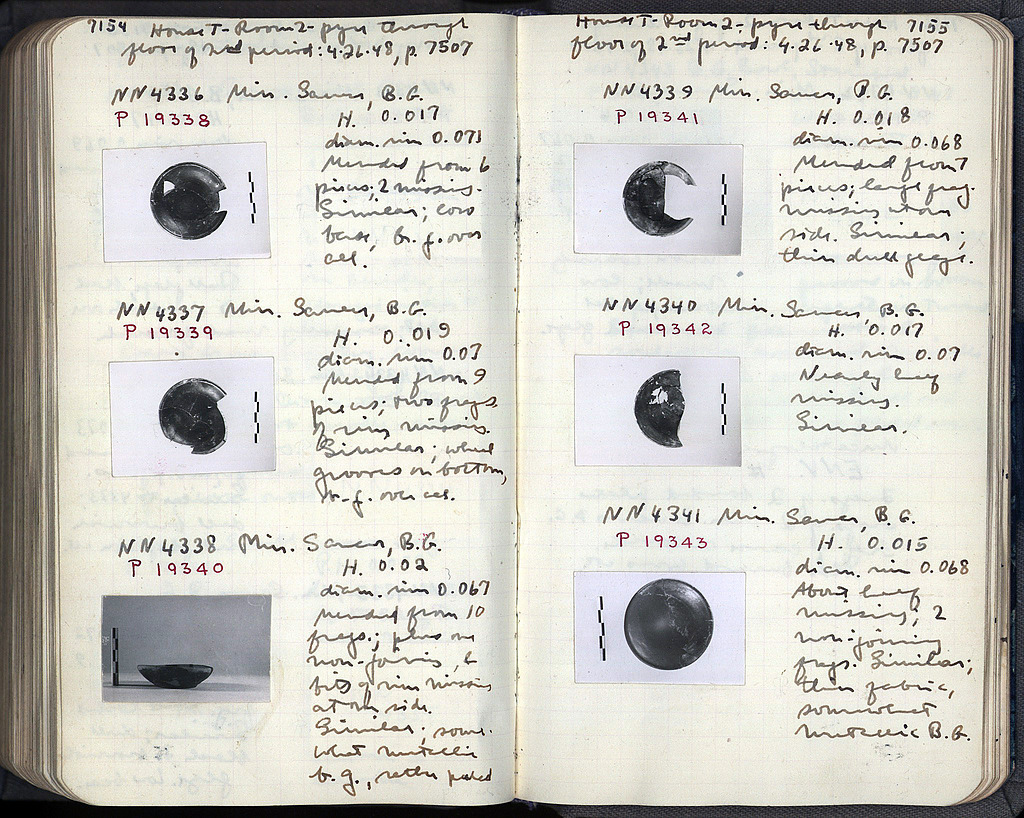 7154 House T - Room 2 - pyre through
floor of 2nd period: 4.26.48, p. 7507
NN4336 Min. Saucer, B.G.
P 19338
H. 0.017
diam. rim 0.073
Mended from 6
pieces; 2 missing.
Similar; low
base, b.g. over
all.
NN4337 Min. Saucer, B.G.
P 19339
H. 0.019
diam. rim 0.07
Mended from 9
pieces; two frags.
of rim missing.
Similar; wheel
grooves on bottom,
b.g. over all.
NN4338 Min. Saucer, B.G.
P 19340
H. 0.02
diam. rim 0.067
Mended from 10
frags.; plus one
non-joining, &
bits of rim missing
at one side.
Similar; some-
what metallic
b.g., rather peeled
House T - Room 2 - pyre through 7155
floor of 2nd period: 4.26.48, p. 7507
NN4339 Min. Saucer, B.G.
P 19341
H. 0.018
diam. rim 0.068
Mended from 7
pieces; large frag.
missing at one
side. Similar;
thin dull glaze.
NN4340 Min. Saucer, B.G.
P 19342
H. 0.017
diam. rim 0.07
Nearly half
missing.
Similar.
NN4341 Min. Saucer, B.G.
P 19343
H. 0.015
diam. rim 0.068
About half
missing; 2
non-joining
frags. Similar;
thin fabric,
somewhat
metallic B.G.